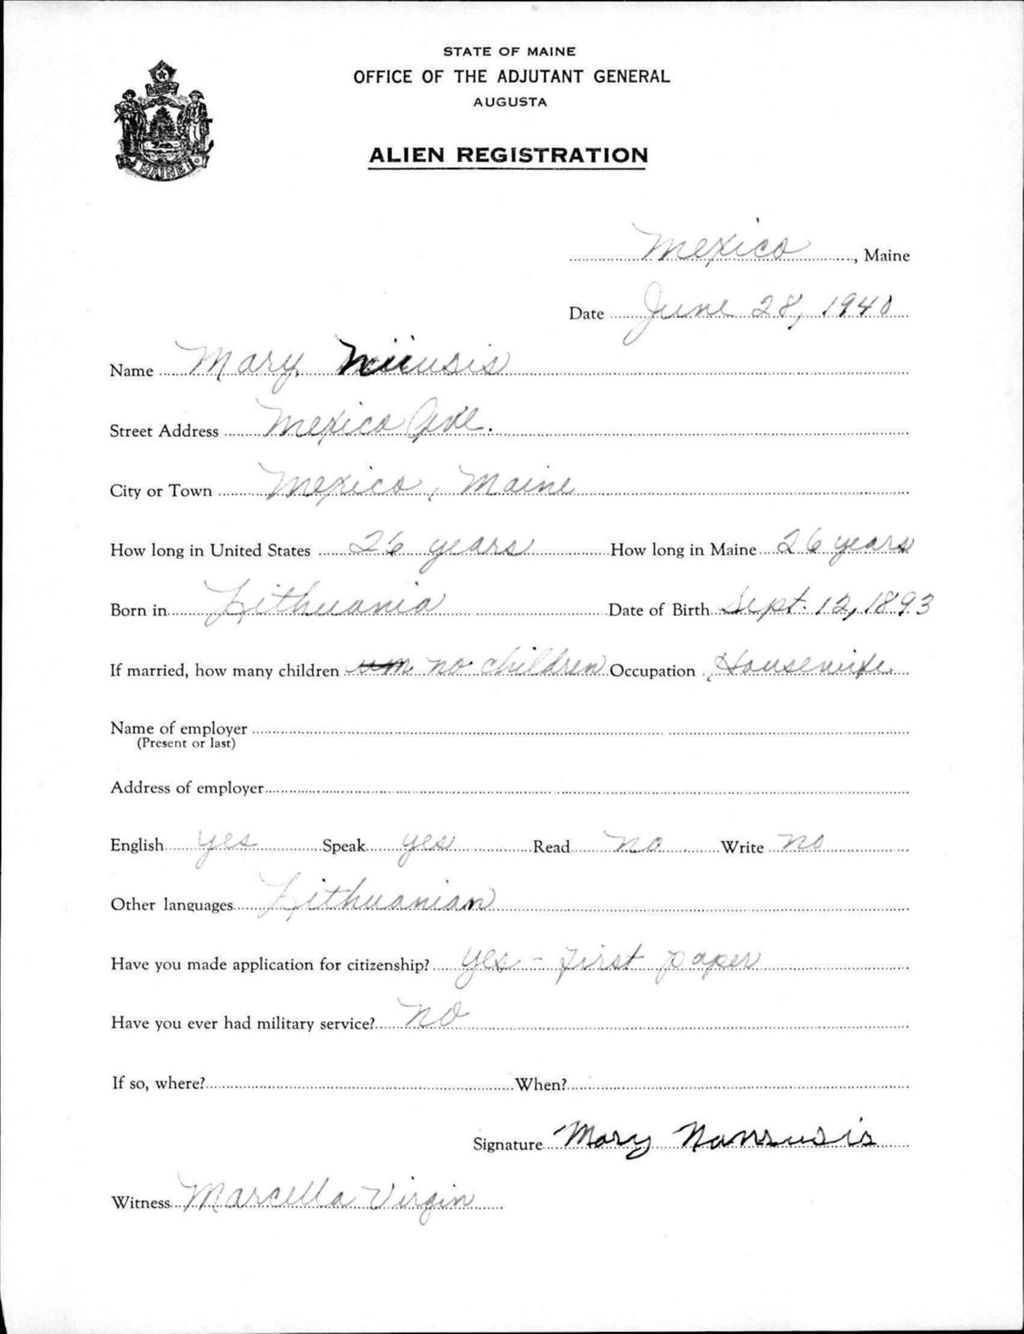 STATE OF MAINE
OFFICE OF THE ADJUTANT GENERAL
AUGUSTA
ALIEN REGISTRATION
MAINE
Mexico, Maine
Date June 28, 1940
Name Mary
Street Address Mexico Ave.
City or Town Mexico, Maine
How long in United States 26 years How long in Maine 26 years
Born in Lithuania Date of Birth Sept. 12, 1893
If married, how many children no children Occupation Housewife
Name of employer
(Present or last)
Address of employer
English yes Speak yes Read no Write no
Other languages Lithuanian
Have you made application for citizenship? yes - first paper
Have you ever had military service? no
If so, where? When?
Signature Mary
Witness Marcella Virgin